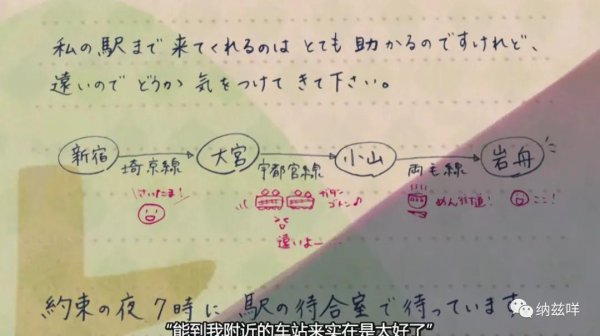 私の駅まで来てくれるのはとても助かるのですけれど、
遠いのでどうか気をつけてきて下さい。
新宿 埼京線 大宮 宇都宮線 小山 両毛線 岩舟
さいたま!
ガタン
ゴトン♪
ここ!
遠いよー
約束の夜7時に駅の待合室で待っています。
“能到我附近的车站来实在是太好了”
纳兹咩